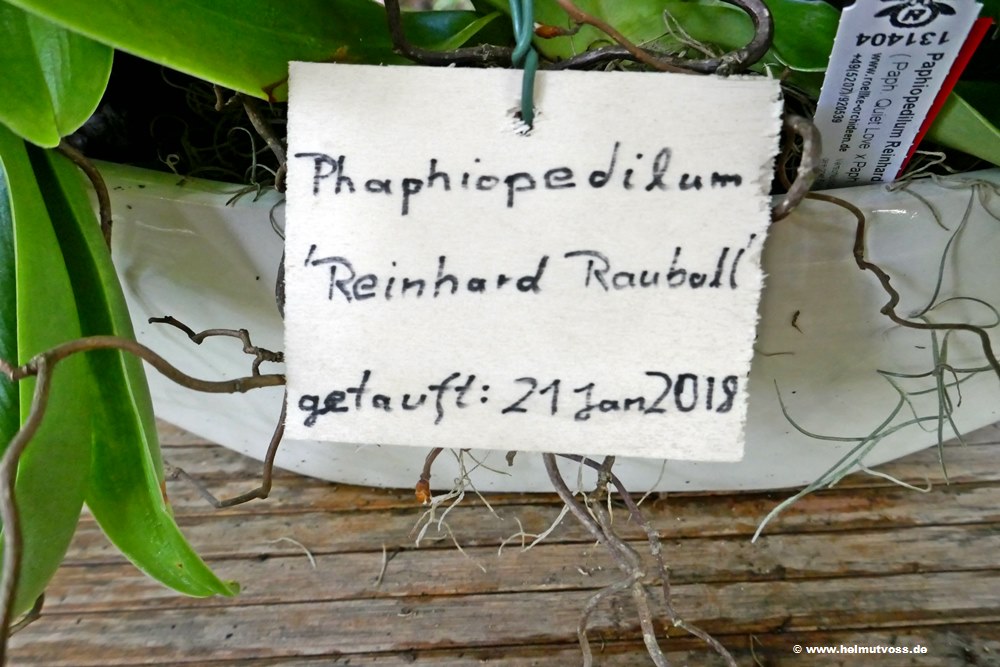 Phaphiopedilum
'Reinhard Rauball'
getauft: 21 Jan 2018
131404
Paphiopedilum Reinhard
( Paph. Quiet Love x Pap
www.roellke-orchideen.de
+49(5207)/920539
© www.helmutvoss.de